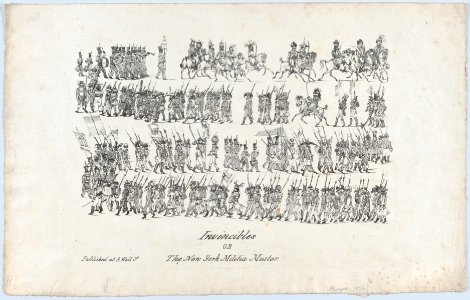 Invincibles
OR
The New York Militia Muster.
Published at 3 Wall St